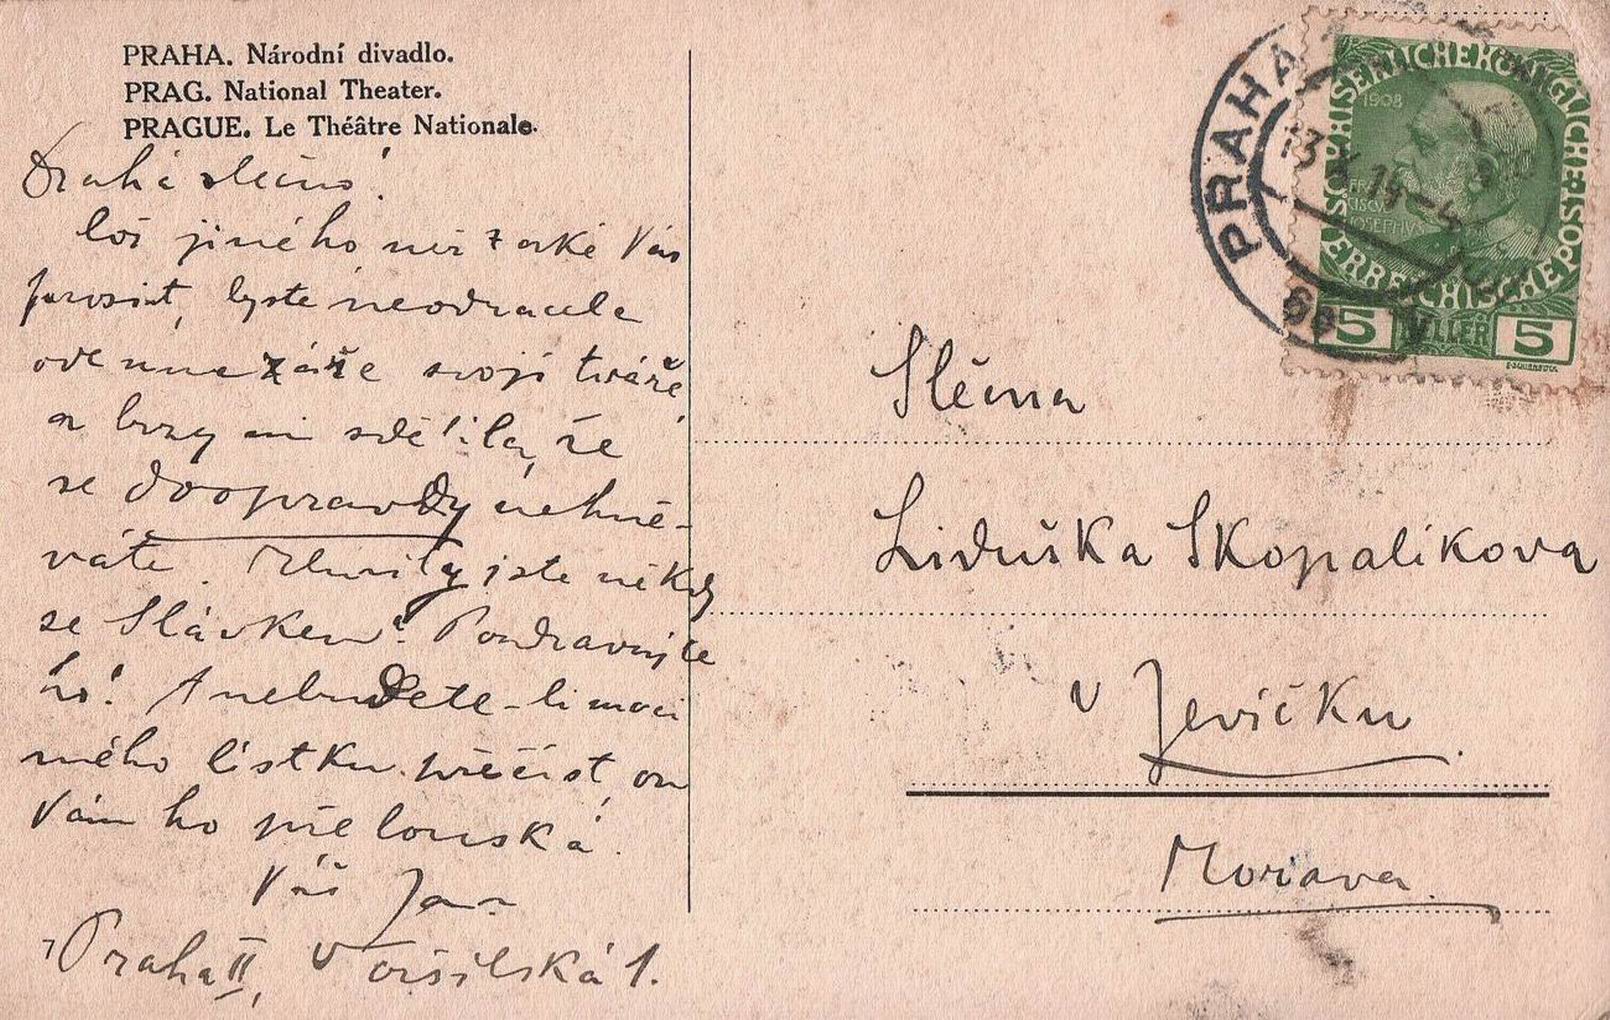 PRAHA. Národní divadlo.
PRAG. National Theater.
PRAGUE. Le Théâtre Nationale.
Drahá slečno!
Coś jiného než Vás
poprosit, byste neodvracela
ode mne záře svojí tváře
a brzy mi sdělila, že
se doopravdy nehně-
váte. Mluvily jste někdy
se Slávkem? Pozdravujte
ho! A nebudete-li moci
mého lístku přečíst, on
Vám ho přelouská.
Váš Jan
Praha II, Voršilská 1.
PRAHA
13 X 14-4
1908
KAISERLICHE KÖNIGLICHE ÖSTERREICHISCHE POST
5 HELLER 5
Slečna
Liduška Skopalíkova
v Jevíčku
Morava.